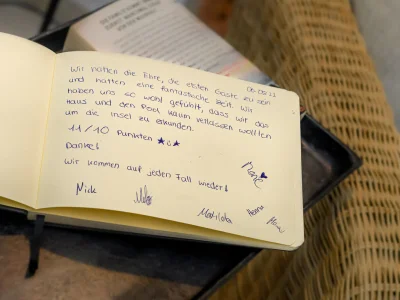 06.08.21
Wir hatten die Ehre, die ersten Gäste zu sein
und hatten eine fantastische Zeit. Wir
haben uns so wohl gefühlt, dass wir das
Haus und den Pool kaum verlassen wollten
um die Insel zu erkunden.
11/10 Punkten ★☺★
Danke!
Wir kommen auf jeden Fall wieder!
Nick
Mathilda
Hanna